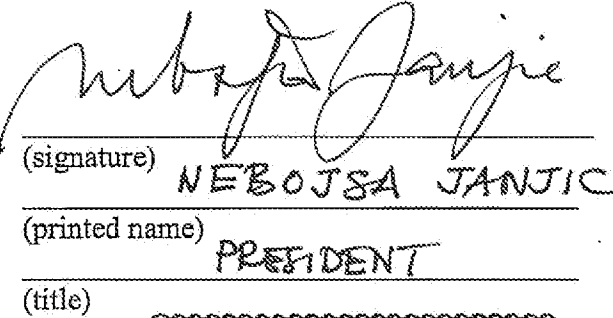 Nebojsa Janjic
(signature)
NEBOJSA JANJIC
(printed name)
PRESIDENT
(title)